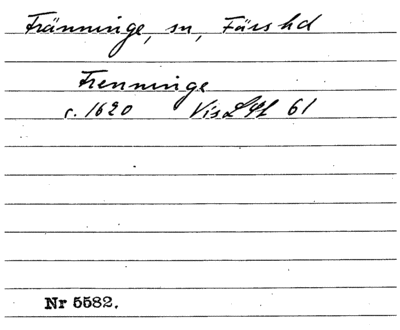 Fränninge, sn, Färs hd
Frenninge
c. 1620 VisLSt 61
Nr 5582.